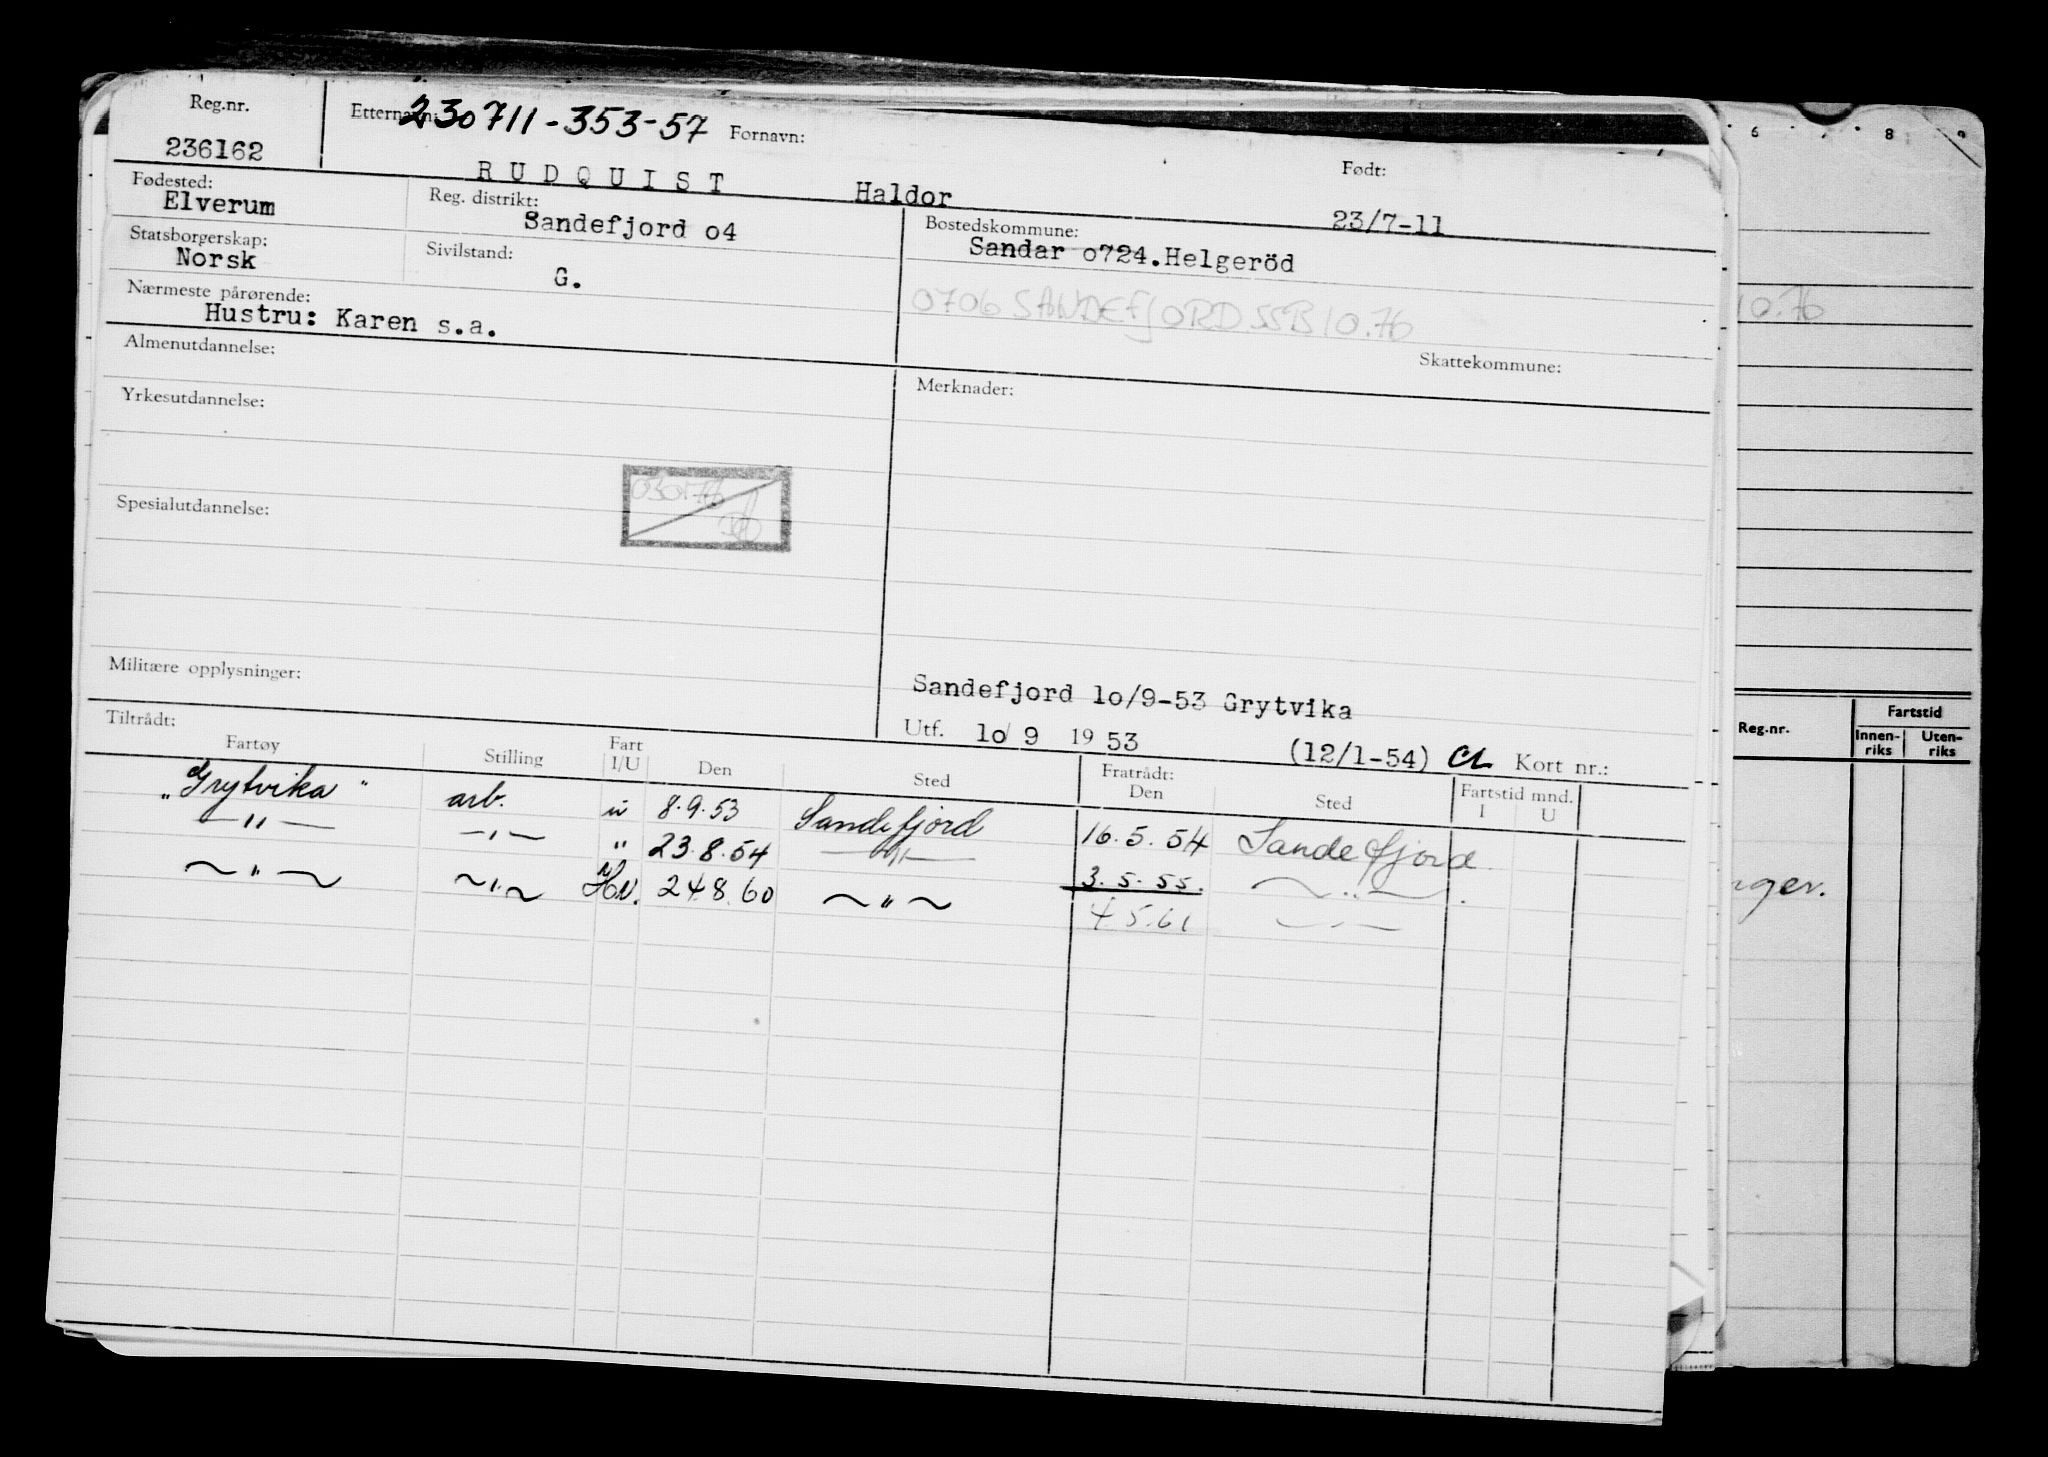 6 8 9
Reg.nr. Etternavn: 230711-353-57 Fornavn: Født:
236162 RUDQUIST Haldor 23/7-11
Fødested: Reg. distrikt: Bostedskommune:
Elverum Sandefjord o4 Sandar o724.Helgeröd
Statsborgerskap: Sivilstand:
Norsk G.
0706 SANDEFJORD SSB 10.76
10.76
Nærmeste pårørende:
Hustru: Karen s.a.
Skattekommune:
Almenutdannelse: Merknader:
Yrkesutdannelse:
Spesialutdannelse:
Militære opplysninger:
Sandefjord lo/9-53 Grytvika
Utf. lo/ 9 19 53 (12/1-54) Kort nr.:
Tiltrådt: Fratrådt:
Fartøy Stilling Fart I/U Den Sted Den Sted Fartstid mnd. I U
"Grytvika" arb. u 8.9.53 Sandefjord 16.5.54 Sandefjord
—"— —"— " 23.8.54 —"— 3.5.55. ~"~
~"~ ~"~ Hv. 24.8.60 ~"~ 4.5.61 —"—
Reg.nr. Fartstid
Innen-riks Uten-riks
nger.